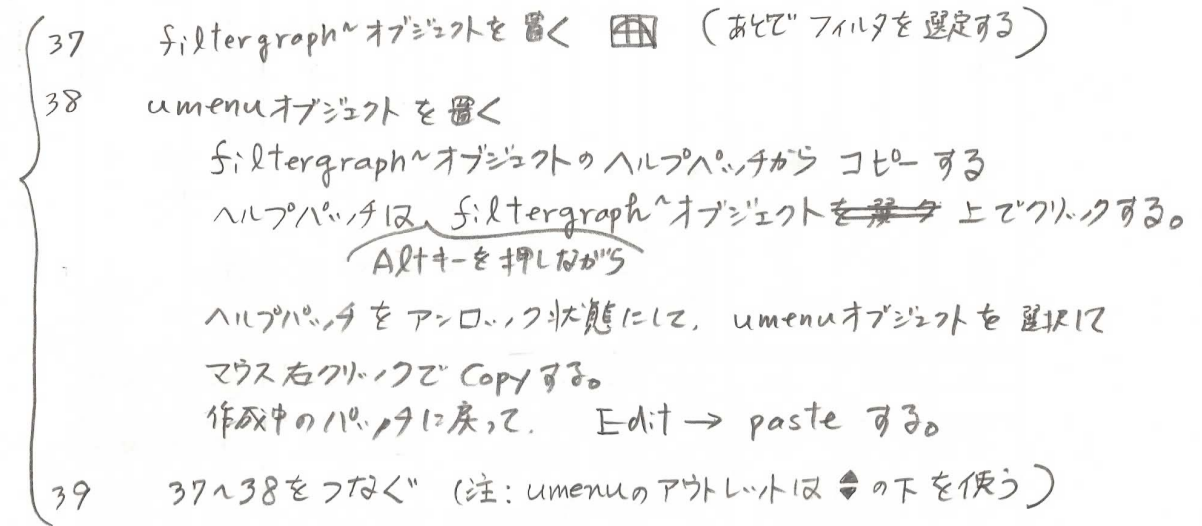 37 filtergraph~オブジェクトを置く (あとでフィルタを選定する)
38 umenuオブジェクトを置く
filtergraph~オブジェクトのヘルプパッチから コピーする
ヘルプパッチは、filtergraph~オブジェクト上でクリックする。
Altキーを押しながら
ヘルプパッチをアンロック状態にして、umenuオブジェクトを選択して
マウス右クリックでCopyする。
作成中のパッチに戻って、 Edit → paste する。
39 37~38をつなぐ (注:umenuのアウトレットは◆の下を使う)